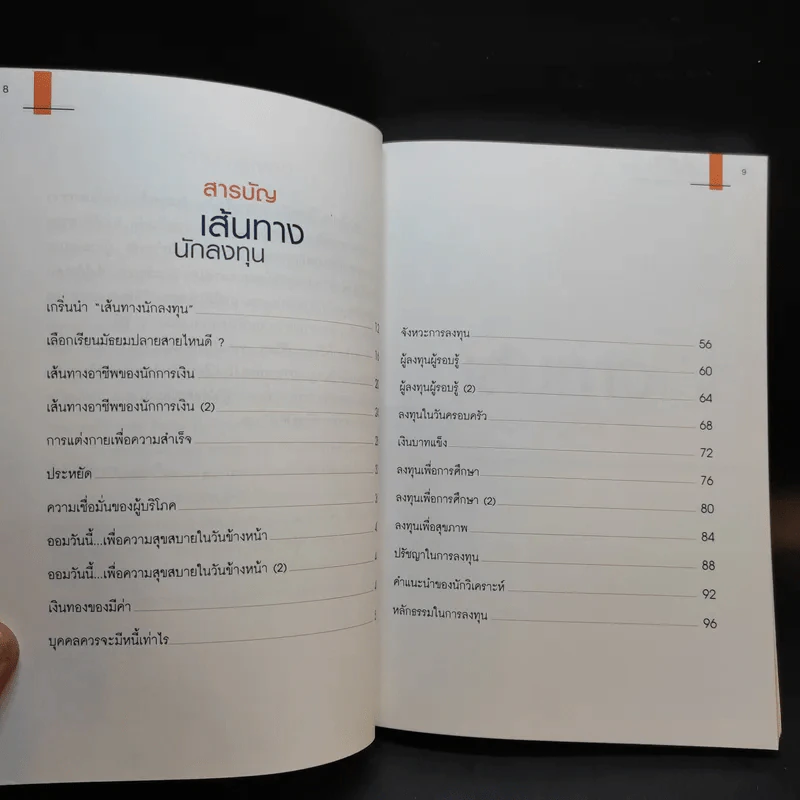 8
สารบัญ
เส้นทาง
นักลงทุน
เกริ่นนำ "เส้นทางนักลงทุน" 12
เลือกเรียนมัธยมปลายสายไหนดี ? 16
เส้นทางอาชีพของนักการเงิน
เส้นทางอาชีพของนักการเงิน (2)
การแต่งกายเพื่อความสำเร็จ
ประหยัด
ความเชื่อมั่นของผู้บริโภค
ออมวันนี้...เพื่อความสุขสบายในวันข้างหน้า
ออมวันนี้...เพื่อความสุขสบายในวันข้างหน้า (2)
เงินทองของมีค่า
บุคคลควรจะมีหนี้เท่าไร
9
จังหวะการลงทุน 56
ผู้ลงทุนผู้รอบรู้ 60
ผู้ลงทุนผู้รอบรู้ (2) 64
ลงทุนในวันครอบครัว 68
เงินบาทแข็ง 72
ลงทุนเพื่อการศึกษา 76
ลงทุนเพื่อการศึกษา (2) 80
ลงทุนเพื่อสุขภาพ 84
ปรัชญาในการลงทุน 88
คำแนะนำของนักวิเคราะห์ 92
หลักธรรมในการลงทุน 96